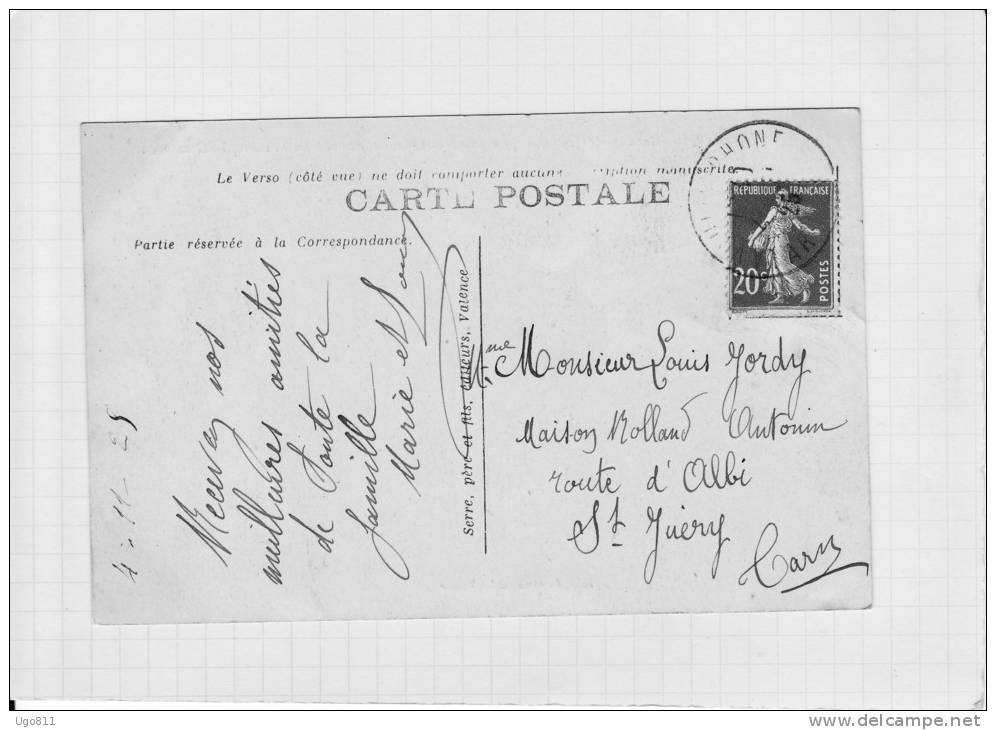 Le Verso (côté vue) ne doit comporter aucune ription manuscrite.
CARTE POSTALE
Partie réservée à la Correspondance.
RHONE
REPUBLIQUE FRANÇAISE
20c
POSTES
4-11-25
Recevez nos
meilleures amitiés
de toute la
famille
Marie et
Serre, père et fils, éditeurs, Valence
Mme Monsieur Louis Jordy
Maison Rolland Antonin
route d'Albi
St Juéry
Tarn
Ugo811
www.delcampe.net